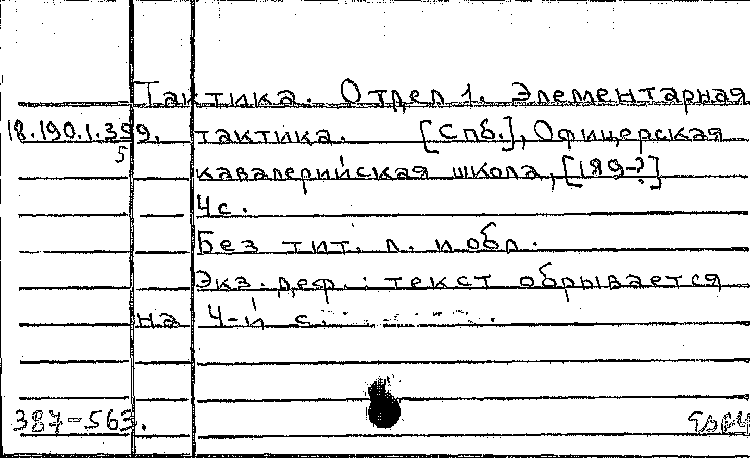 Тактика. Отдел 1. Элементарная
18.190.1.399. тактика. [Спб.], Офицерская
5
кавалерийская школа, [189-?]
4с.
Без тит. л. и обл.
Экз. деф.: текст обрывается
на 4-й с.
387-563.